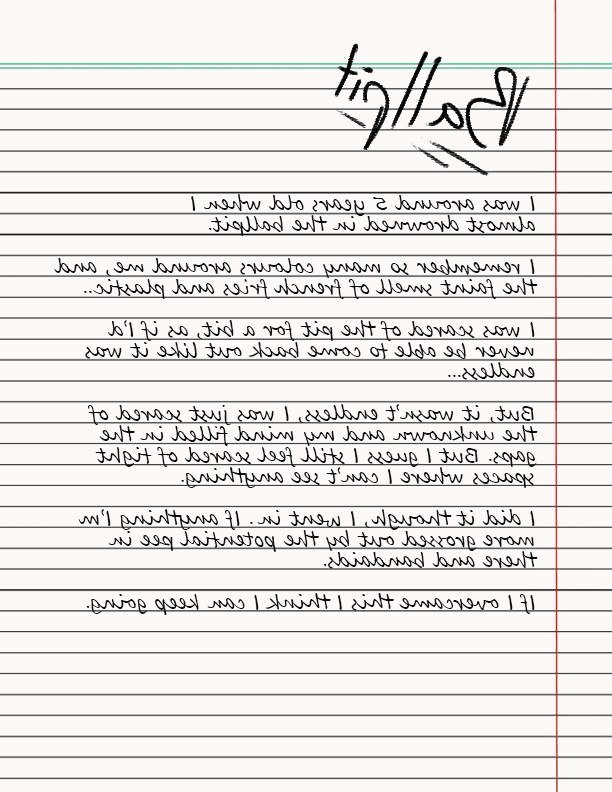 Ball pit
I was around 5 years old when I
almost drowned in the ballpit.
I remember so many colours around me, and
the faint smell of french fries and plastic..
I was scared of the pit for a bit, as if I'd
never be able to come back out like it was
endless...
But, it wasn't endless, I was just scared of
the unknown and my mind filled in the
gaps. But I guess I still feel scared of tight
spaces where I can't see anything.
I did it though, I went in. If anything I'm
more grossed out by the potential pee in
there and bandaids.
If I overcame this I think I can keep going.